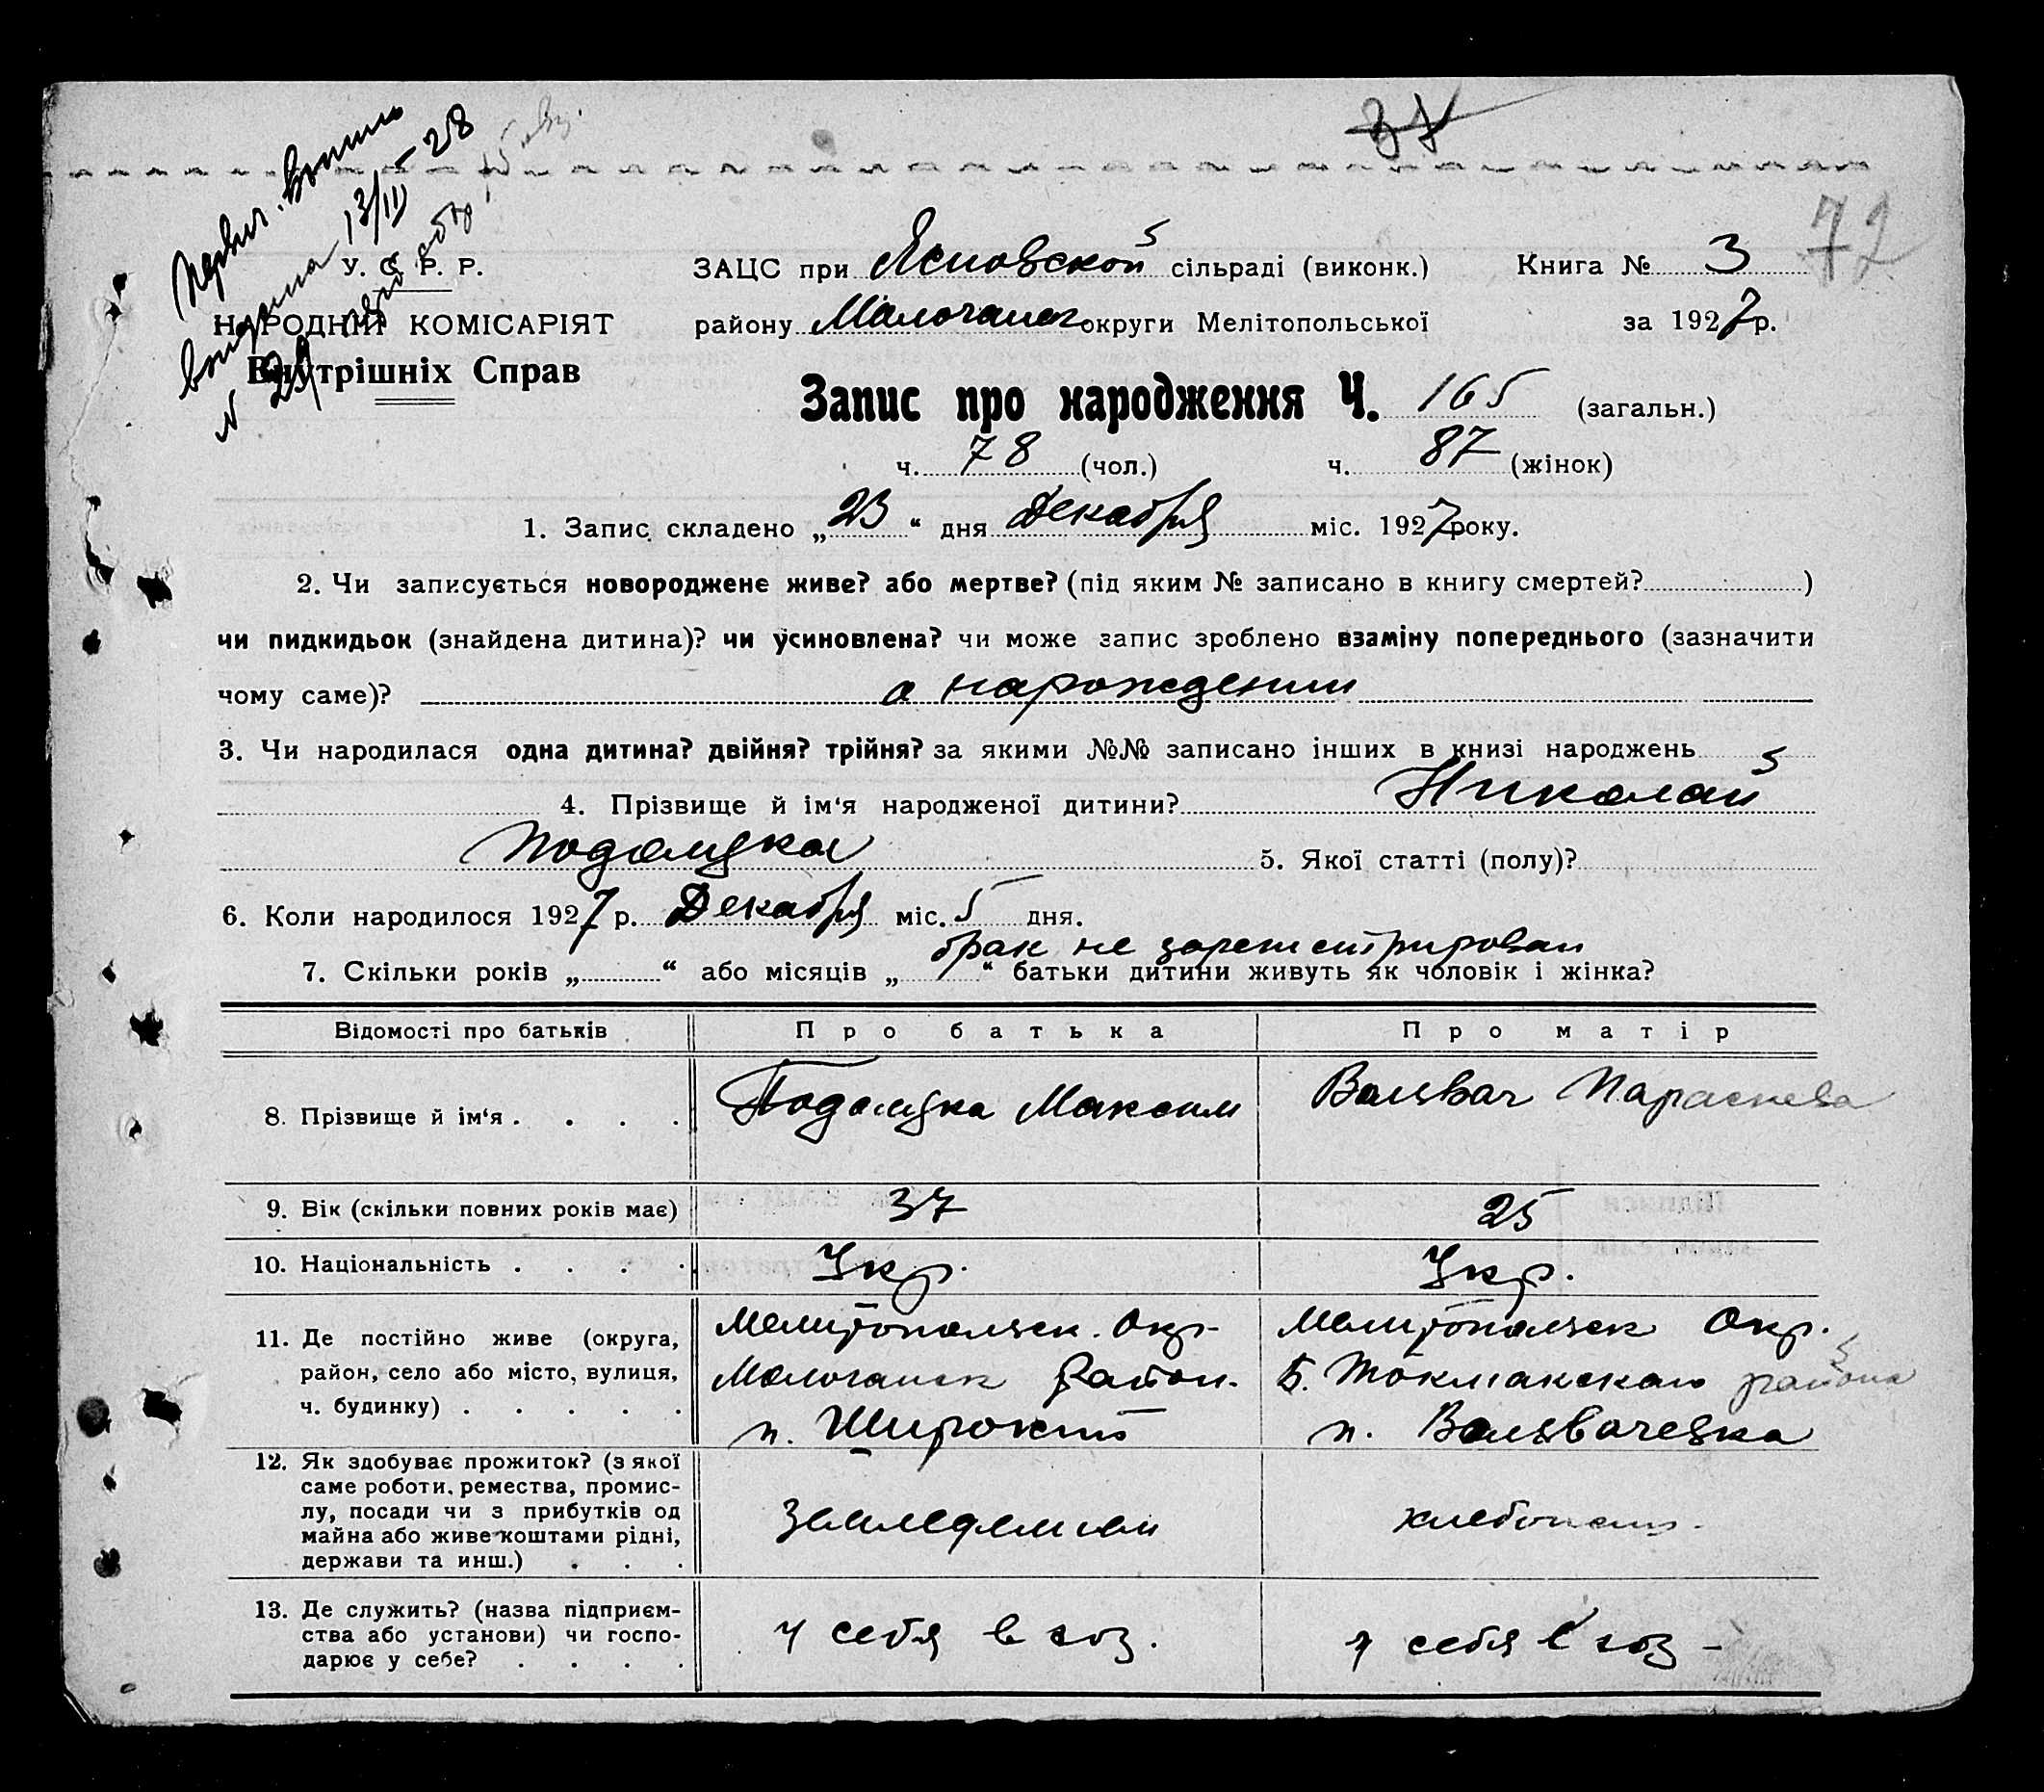 37
72
Первич. выпись
выдана 13/III – 28
У. С. Р. Р.
НАРОДНІЙ КОМІСАРІЯТ
Внутрішніх Справ
ЗАЦС при Ясиновской сільраді (виконк.) Книга № 3
району Малочанск округи Мелітопольської за 1927 р.
Запис про народження Ч. 165 (загальн.)
ч. 78 (чол.) ч. 87 (жінок)
1. Запис складено „23“ дня Декабря міс. 1927 року.
2. Чи записується новороджене живе? або мертве? (під яким № записано в книгу смертей? )
чи пидкидьок (знайдена дитина)? чи усиновлена? чи може запис зроблено взаміну попереднього (зазначити
чому саме)? о нарождении
3. Чи народилася одна дитина? двійня? трійня? за якими №№ записано інших в книзі народжень
4. Прізвище й ім‘я народженої дитини? Николай
Подолуока 5. Якої статті (полу)?
6. Коли народилося 1927 р. Декабря міс. 5 дня.
брак не зарегистрирован
7. Скільки років „ “ або місяців „ “ батьки дитини живуть як чоловік і жінка?
Відомості про батьків Про батька Про матір
8. Прізвище й ім‘я . . . . Максим Вольвач Параскева
9. Вік (скільки повних років має) 37 25
10. Національність . . . . Укр. Укр.
11. Де постійно живе (округа, Мелитопольск. Окр. Мелитопольск Окр.
район, село або місто, вулиця, Молочанск Район. Б. Токмакскаго района
ч. будинку) . . . . . п. Широкий п. Вольвачевка
12. Як здобуває прожиток? (з якої
саме роботи, ремества, промис-
лу, посади чи з прибутків од Земледелием хлебопаш.
майна або живе коштами рідні,
держави та инш.) . . .
13. Де служить? (назва підприєм-
ства або установи) чи госпо- у себя в хоз. у себя в хоз
дарює у себе? . . . .